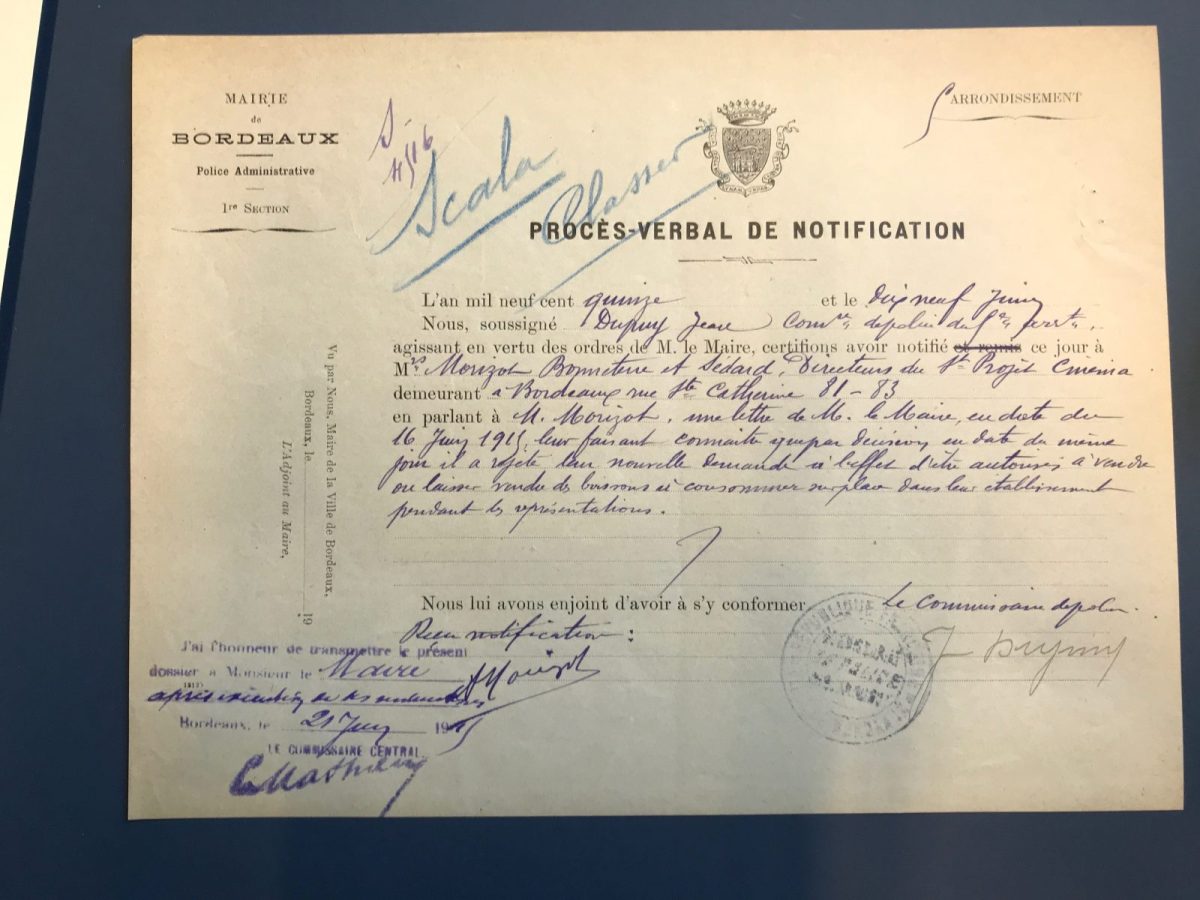 MAIRIE
de
BORDEAUX
Police Administrative
1re SECTION
S-
4516
Scala
Classer
ARRONDISSEMENT
PROCÈS-VERBAL DE NOTIFICATION
L'an mil neuf cent quinze et le dix neuf Juin
Nous, soussigné Dupuy Jean Comre de police du
agissant en vertu des ordres de M. le Maire, certifions avoir notifié et remis ce jour à
Mrs Morizot Bonneterre et Sédard, Directeurs du St Projet Cinéma
demeurant à Bordeaux rue Ste Catherine 81-83
en parlant à M. Morizot, une lettre de M. le Maire, en date du
16 Juin 1915, leur faisant connaitre que par décision en date du même
jour il a rejeté leur nouvelle demande à l'effet d'être autorisés à vendre
ou laisser vendre des boissons à consommer sur place dans leur établissement
pendant les représentations.
Nous lui avons enjoint d'avoir à s'y conformer
Le Commissaire de police
Reçu notification :
Morizot
J. Dupuy
Vu par Nous, Maire de la Ville de Bordeaux,
Bordeaux, le 19
L'Adjoint au Maire,
J'ai l'honneur de transmettre le présent
dossier à Monsieur le Maire
après exécution de ses
Bordeaux, le 21 Juin 1915
LE COMMISSAIRE CENTRAL